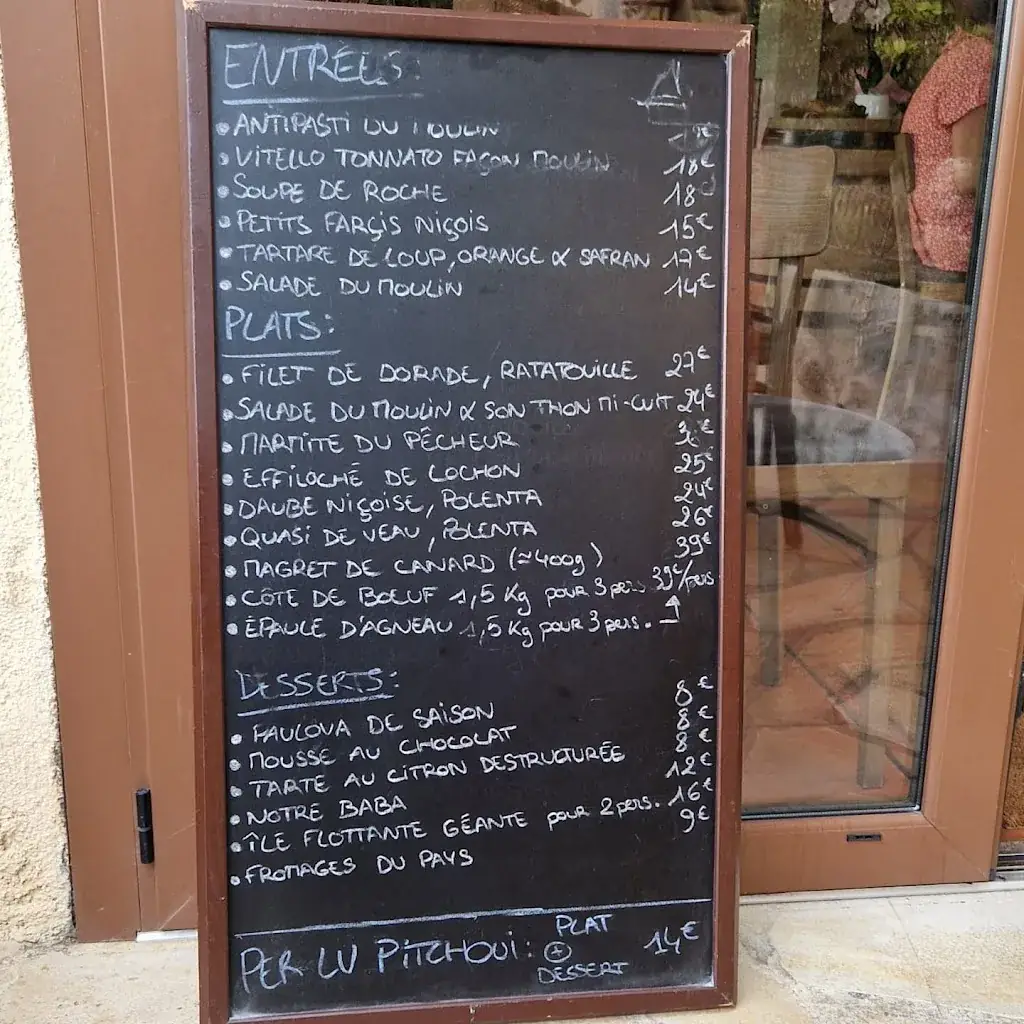 ENTRÉES
• ANTIPASTI DU MOULIN
• VITELLO TONNATO FAÇON MOULIN 18€
• SOUPE DE ROCHE 18€
• PETITS FARÇIS NIÇOIS 15€
• TARTARE DE LOUP, ORANGE & SAFRAN 17€
• SALADE DU MOULIN 14€
PLATS:
• FILET DE DORADE, RATATOUILLE 27€
• SALADE DU MOULIN & SON THON MI-CUIT 24€
• MARMITE DU PÊCHEUR
• EFFILOCHÉ DE COCHON 25€
• DAUBE NIÇOISE, POLENTA 24€
• QUASI DE VEAU, POLENTA 26€
• MAGRET DE CANARD (≈400g) 39€
• CÔTE DE BOEUF 1,5 Kg pour 3 pers. 39€/pers
• ÉPAULE D'AGNEAU 1,5 Kg pour 3 pers.
DESSERTS:
• PAVLOVA DE SAISON 8€
• MOUSSE AU CHOCOLAT 8€
• TARTE AU CITRON DESTRUCTURÉE 8€
• NOTRE BABA 12€
• ÎLE FLOTTANTE GÉANTE pour 2 pers. 16€
• FROMAGES DU PAYS 9€
PER LU PITCHOUI: PLAT + DESSERT 14€